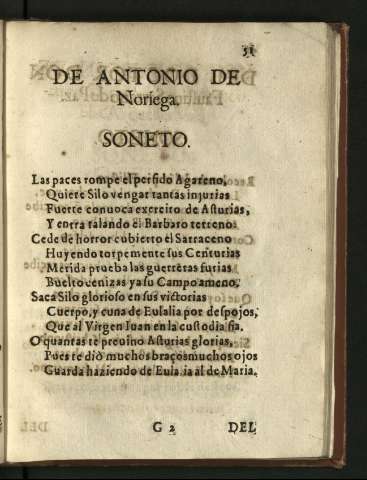 51
DE ANTONIO DE
Noriega.
SONETO.
Las paces rompe el perfido Agareno,
Quiere Silo vengar tantas injurias
Fuerte conuoca exercito de Asturias,
Y entra talando el Barbaro terreno.
Cede de horror cubierto el Sarraceno
Huyendo torpemente sus Centurias
Merida prueba las guerreras furias
Buelto cenizas ya su Campo ameno.
Saca Silo glorioso en sus victorias
Cuerpo, y cuna de Eulalia por despojos,
Que al Virgen Iuan en la custodia fia.
O quantas te preuino Asturias glorias,
Pues te dio muchos braços muchos ojos
Guarda haziendo de Eulalia al de Maria.
G 2 DEL